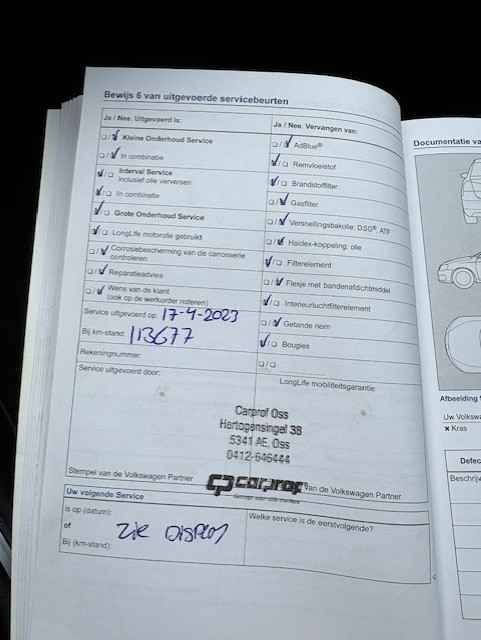 Bewijs 6 van uitgevoerde servicebeurten
Ja / Nee: Uitgevoerd is:
Kleine Onderhoud Service
In combinatie
Interval Service
inclusief olie verversen
In combinatie
Grote Onderhoud Service
LongLife motorolie gebruikt
Corrosiebescherming van de carrosserie
controleren
Reparatieadvies
Wens van de klant
(ook op de werkorder noteren)
Service uitgevoerd op: 17-4-2023
Bij km-stand: 113677
Rekeningnummer:
Service uitgevoerd door:
Ja / Nee: Vervangen van:
AdBlue®
Remvloeistof
Brandstoffilter
Gasfilter
Versnellingsbakolie: DSG® ATF
Haldex-koppeling: olie
Filterelement
Flesje met bandenafdichtmiddel
Interieurluchtfilterelement
Getande riem
Bougies
LongLife mobiliteitsgarantie:
Carprof Oss
Hertogensingel 38
5341 AE, Oss
0412-646444
carprof
Stempel van de Volkswagen Partner
van de Volkswagen Partner
Uw volgende Service
is op (datum):
of
Bij (km-stand):
Zie Display
Welke service is de eerstvolgende?
Documentatie va
Afbeelding
Uw Volksw
× Kras
Defec
Beschrij